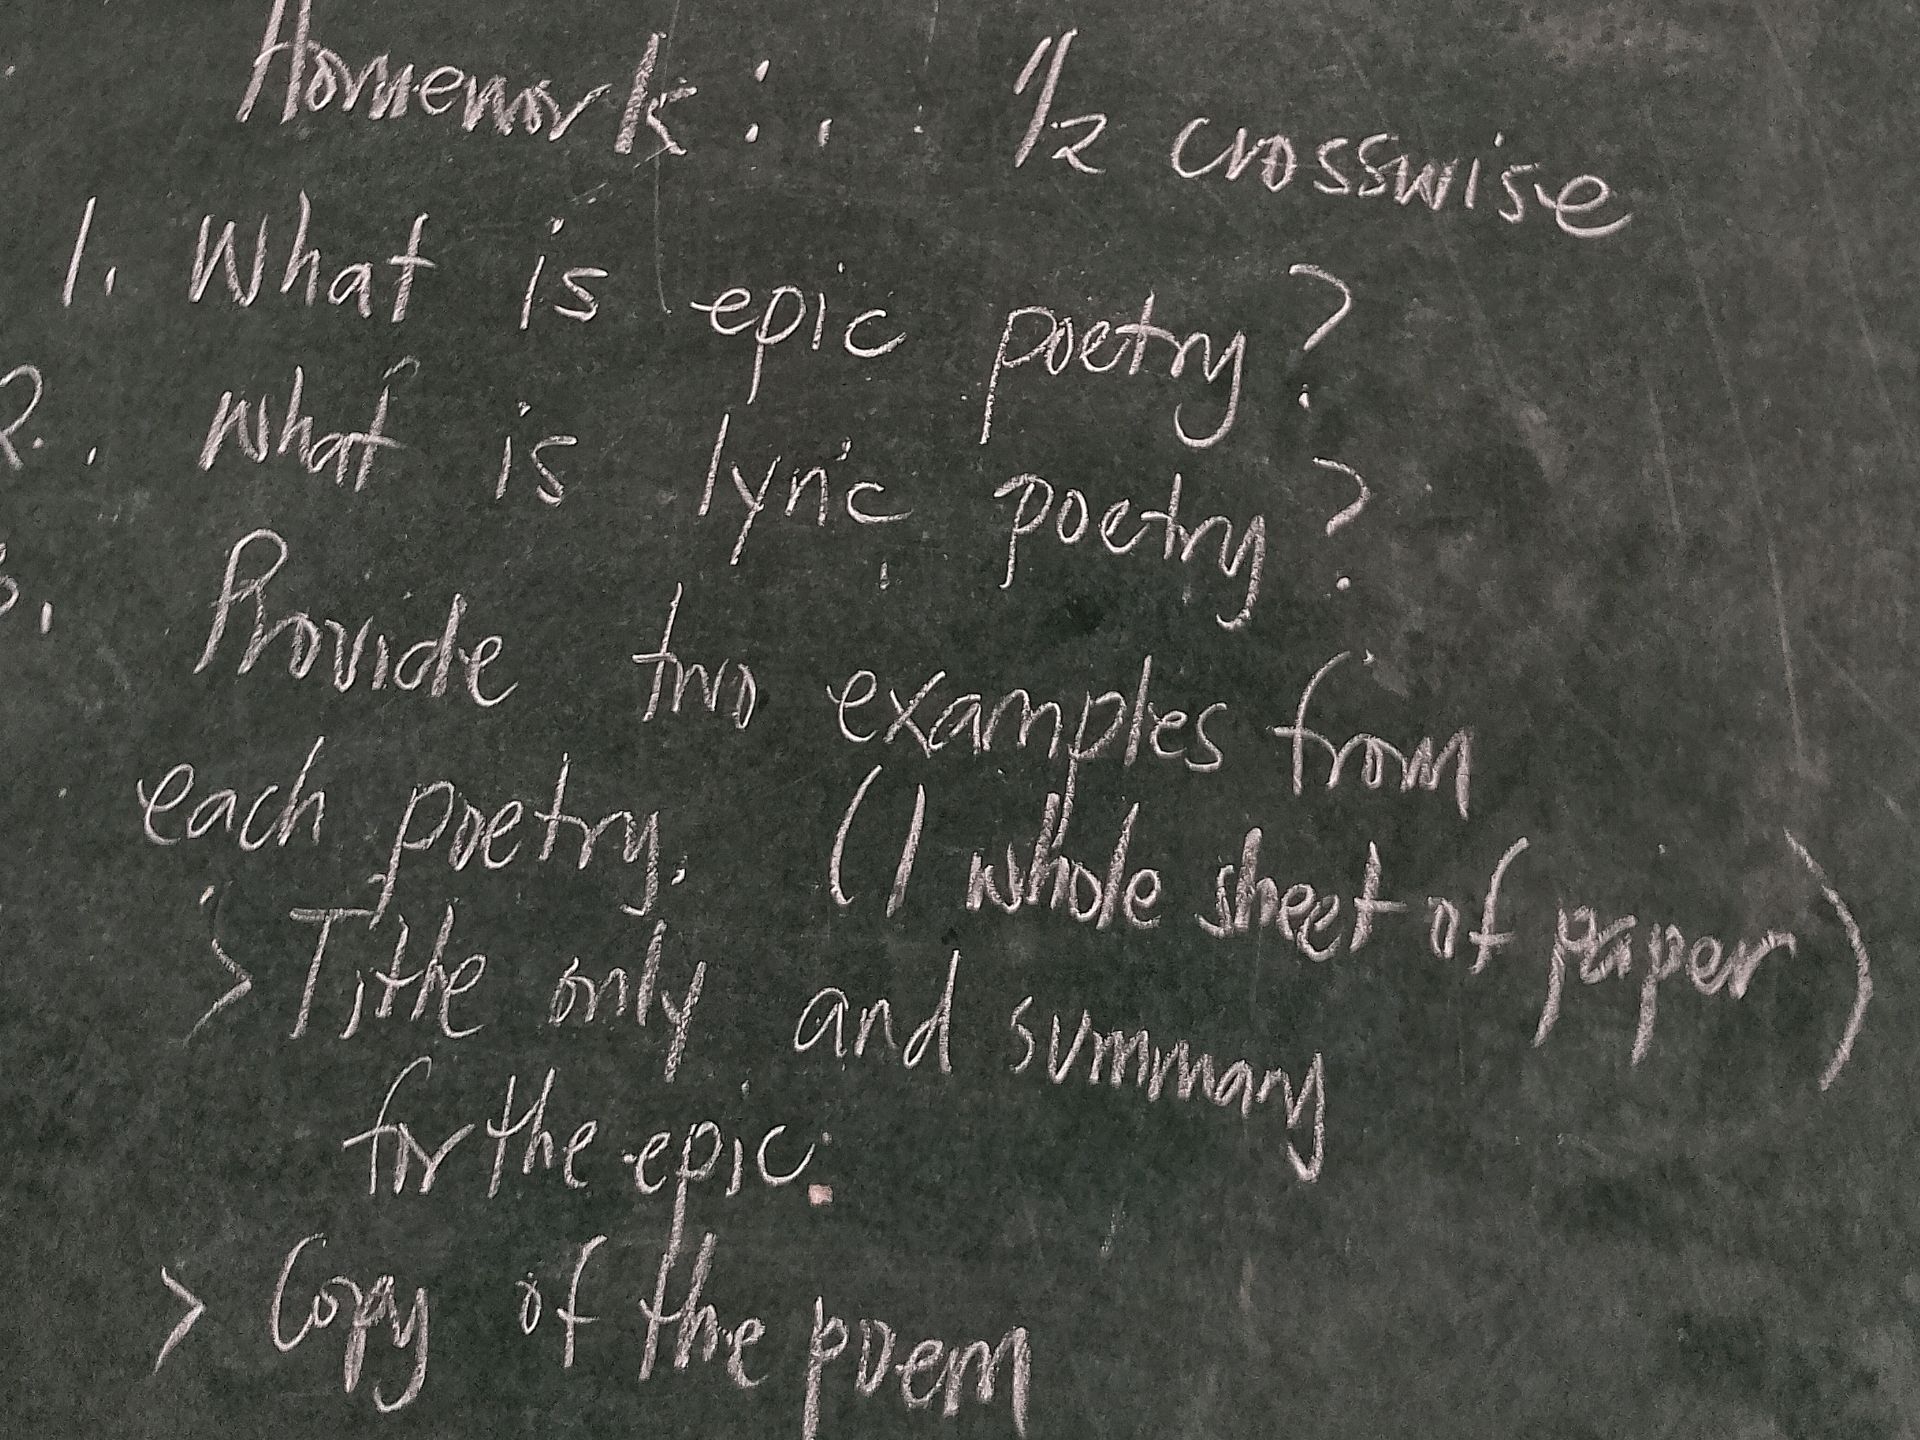 Homework: 1/2 crosswise
1. What is epic poetry?
2. What is lyric poetry?
3. Provide two examples from
each poetry. (1 whole sheet of paper)
> Title only and summary
for the epic.
> Copy of the poem